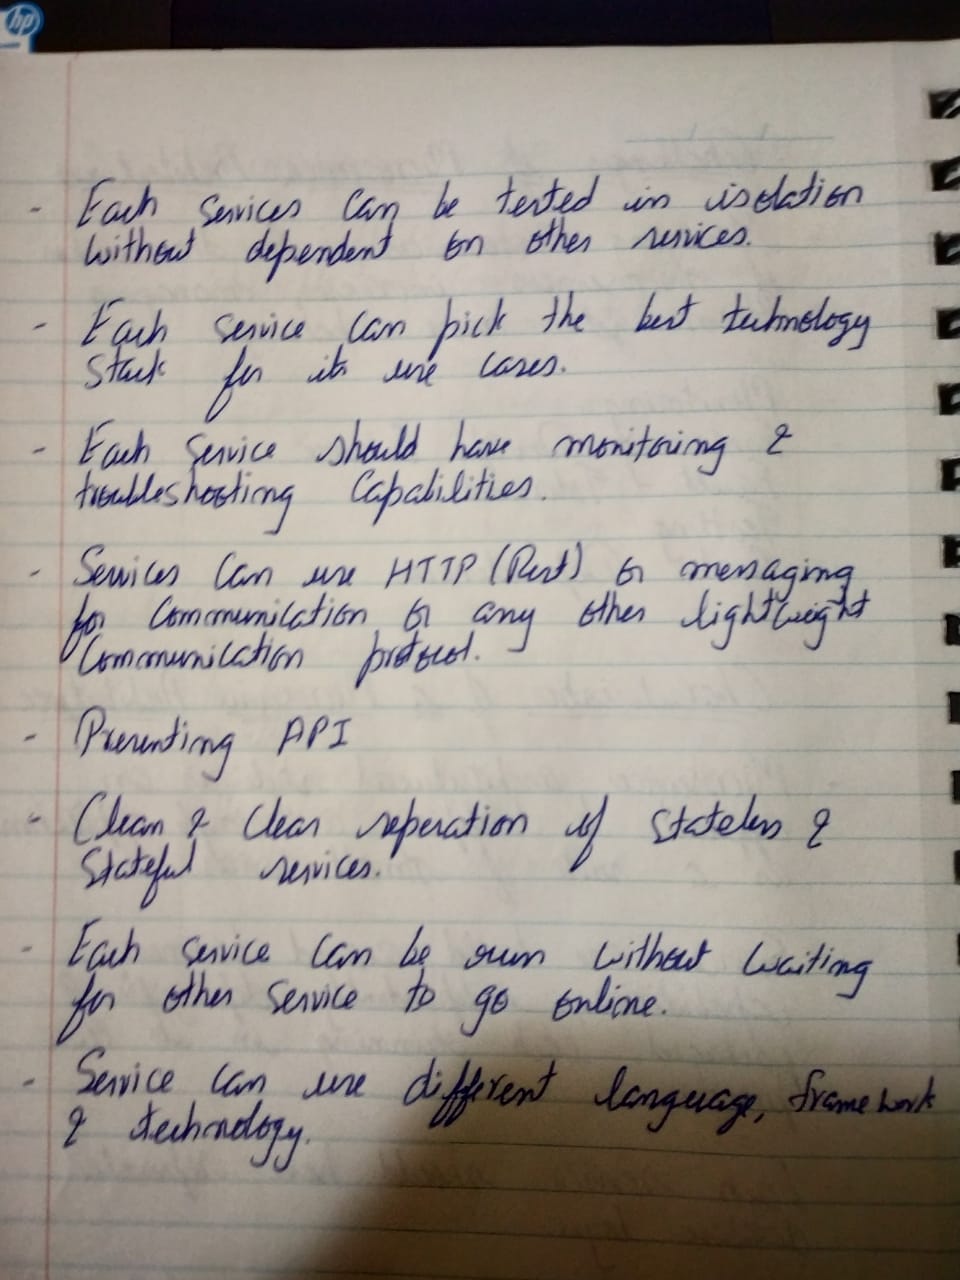 hp
- Each Services Can be tested in isolation
without dependent on other services.
- Each service can pick the best technology
Stack for its use cases.
- Each Service should have monitoring &
troubleshooting Capabilities.
- Services Can use HTTP (Rest) or messaging
for Communication or any other lightweight
Communication protocol.
- Presenting API
- Clean & Clear seperation of Stateless &
Stateful services.
- Each service Can be run without waiting
for other Service to go online.
- Service Can use different language, framework
& technology.